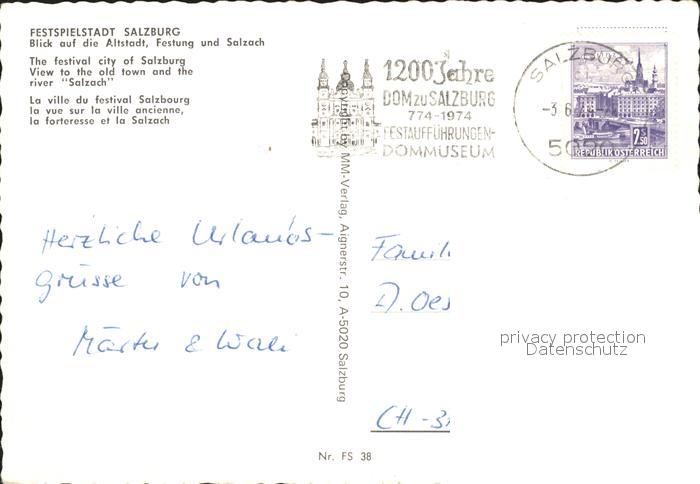 FESTSPIELSTADT SALZBURG
Blick auf die Altstadt, Festung und Salzach
The festival city of Salzburg
View to the old town and the
river "Salzach"
La ville du festival Salzbourg
la vue sur la ville ancienne,
la forteresse et la Salzach
1200 Jahre
DOM zu SALZBURG
774-1974
FESTAUFFÜHRUNGEN-
DOMMUSEUM
SALZBURG
-3.6.
5020
2.50
REPUBLIK ÖSTERREICH
Copyright by MM-Verlag, Aignerstr. 10, A-5020 Salzburg
Herzliche Urlaubs-
grüsse von
&
Famili
D. Oes
CH-3
privacy protection
Datenschutz
Nr. FS 38